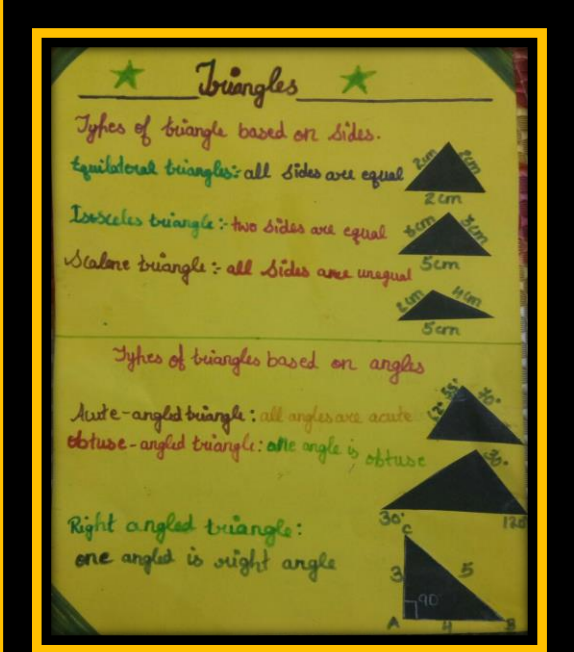 Triangles
Types of triangle based on sides.
Equilateral triangles:- all sides are equal
2cm 2cm
2cm
Isosceles triangle:- two sides are equal
3cm 3cm
5cm
Scalene triangle:- all sides are unequal
2cm 4cm
5cm
Types of triangles based on angles
Acute-angled triangle: all angles are acute
55° 70°
obtuse-angled triangle: one angle is obtuse
30°
30° 120
Right angled triangle:
one angled is right angle
C
3 5
90
A 4 B